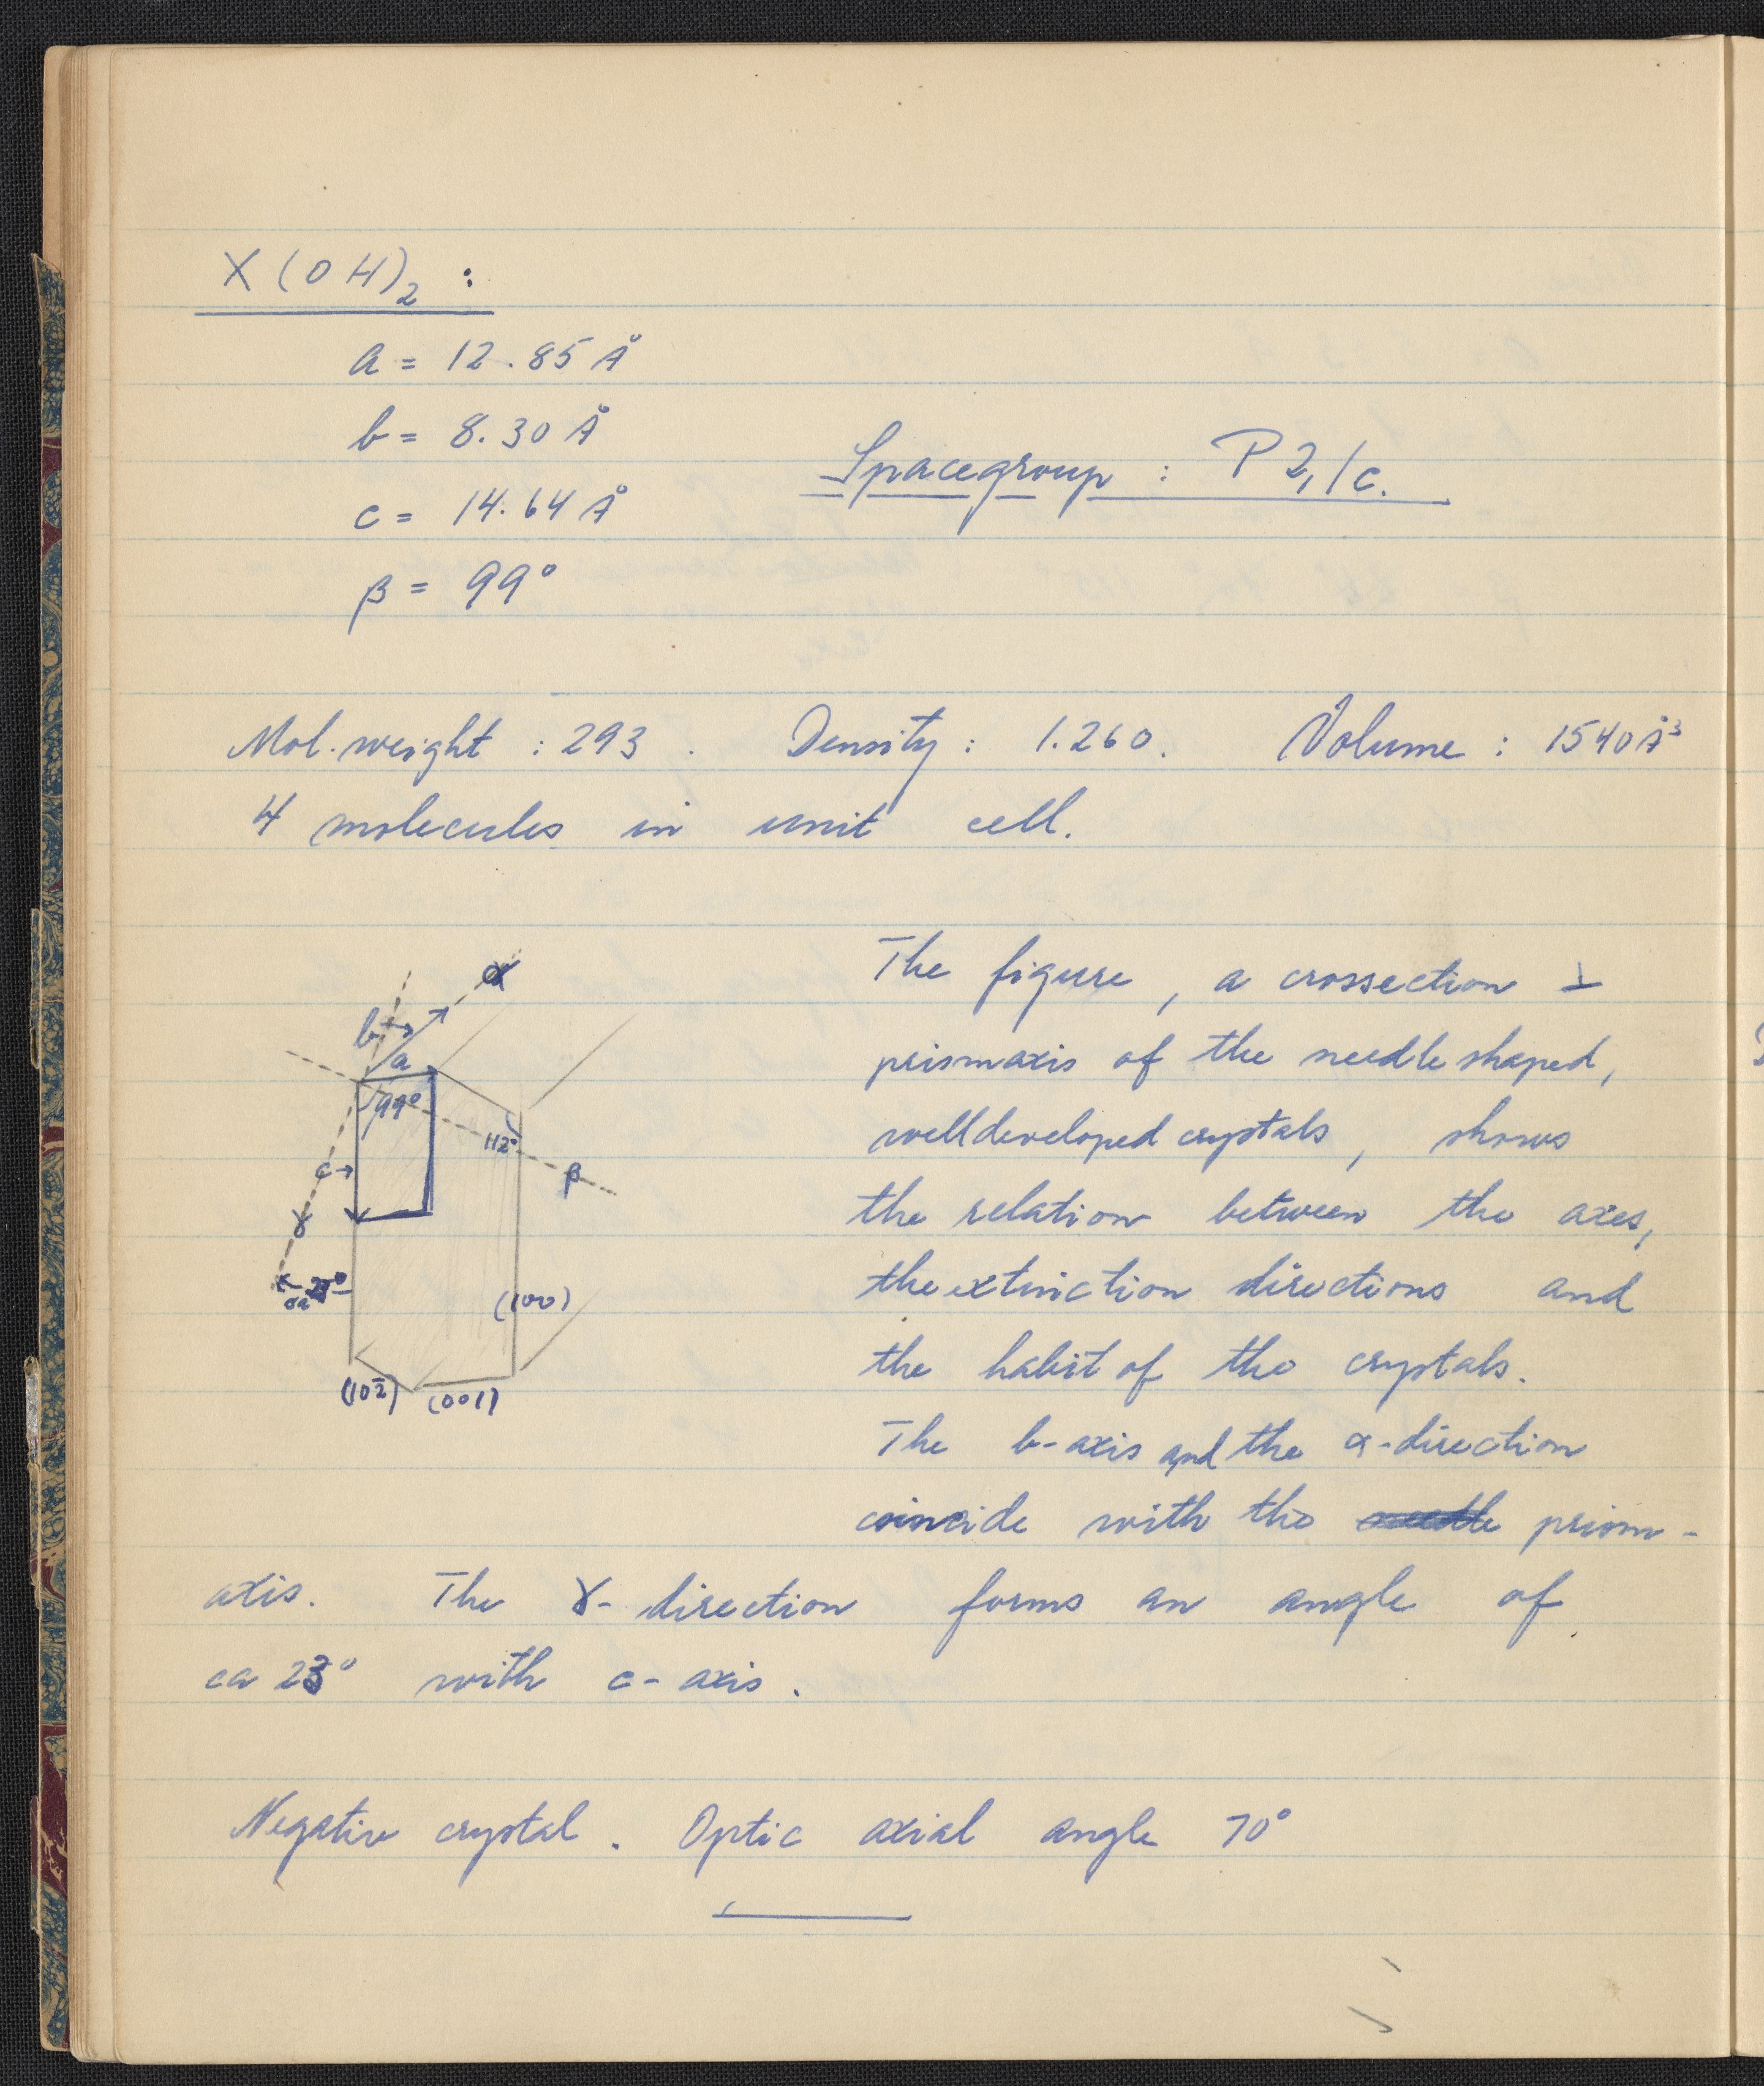 X(OH)₂ :
a = 12.85 Å
b = 8.30 Å
c = 14.64 Å
β = 99°
Spacegroup : P2₁/c.
Mol. weight : 293 . Density : 1.260. Volume : 1540 Å³
4 molecules in unit cell.
α
b→
a
99°
112°
c→
β
γ
ca
(100)
(102̄) (001)
The figure, a crossection ⊥
prismaxis of the needle shaped,
welldeveloped crystals, shows
the relation between the axes,
the extinction directions and
the habit of the crystals.
The b-axis and the α-direction
coincide with the prism-
axis. The γ-direction forms an angle of
ca 23° with c-axis.
Negative crystal. Optic axial angle 70°